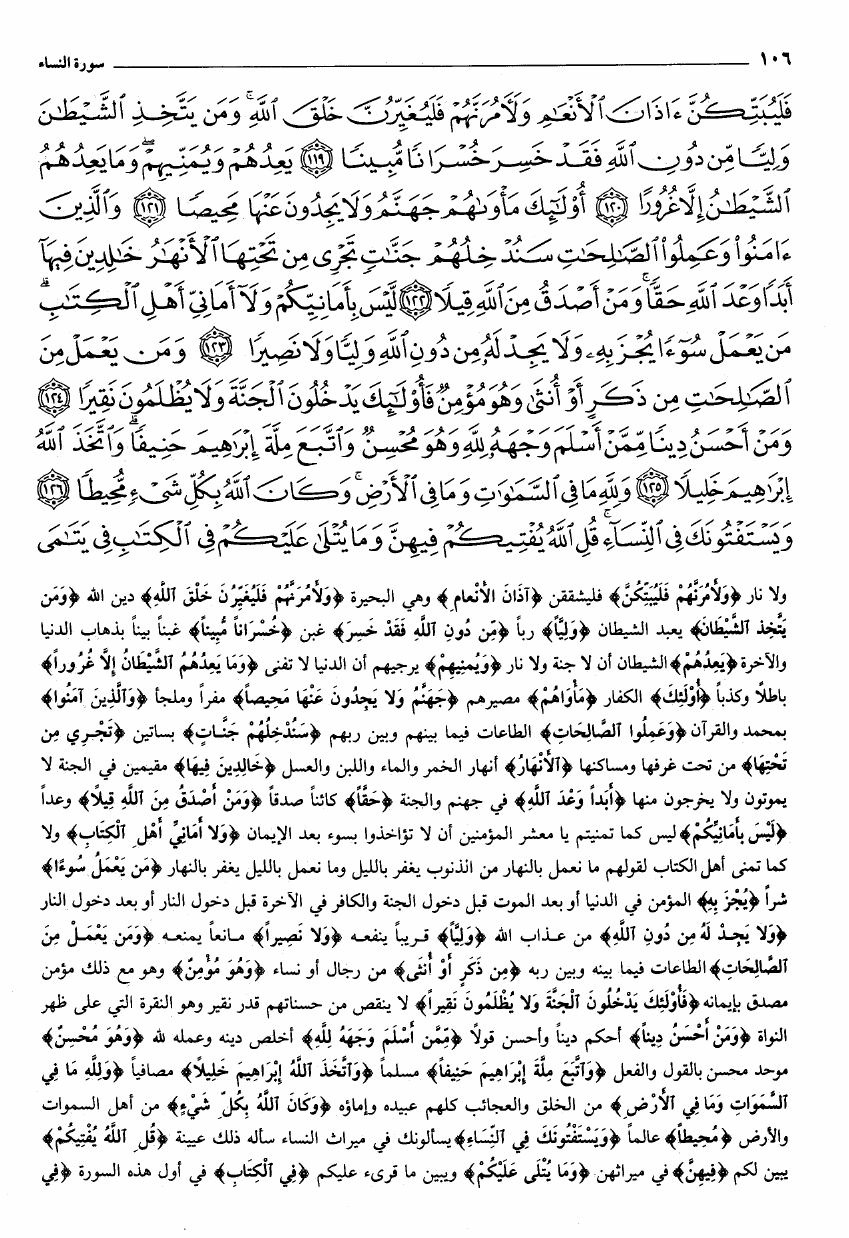 ١٠٦ سورة النساء
فَلَيُبَتِّكُنَّ ءَاذَانَ ٱلْأَنْعَٰمِ وَلَءَامُرَنَّهُمْ فَلَيُغَيِّرُنَّ خَلْقَ ٱللَّهِ ۚ وَمَن يَتَّخِذِ ٱلشَّيْطَٰنَ
وَلِيًّا مِّن دُونِ ٱللَّهِ فَقَدْ خَسِرَ خُسْرَانًا مُّبِينًا ١١٩ يَعِدُهُمْ وَيُمَنِّيهِمْ ۖ وَمَا يَعِدُهُمُ
ٱلشَّيْطَٰنُ إِلَّا غُرُورًا ١٢٠ أُو۟لَٰٓئِكَ مَأْوَىٰهُمْ جَهَنَّمُ وَلَا يَجِدُونَ عَنْهَا مَحِيصًا ١٢١ وَٱلَّذِينَ
ءَامَنُوا۟ وَعَمِلُوا۟ ٱلصَّٰلِحَٰتِ سَنُدْخِلُهُمْ جَنَّٰتٍ تَجْرِى مِن تَحْتِهَا ٱلْأَنْهَٰرُ خَٰلِدِينَ فِيهَآ
أَبَدًا وَعْدَ ٱللَّهِ حَقًّا ۚ وَمَنْ أَصْدَقُ مِنَ ٱللَّهِ قِيلًا ١٢٢ لَّيْسَ بِأَمَانِيِّكُمْ وَلَآ أَمَانِىِّ أَهْلِ ٱلْكِتَٰبِ ۗ
مَن يَعْمَلْ سُوٓءًا يُجْزَ بِهِۦ وَلَا يَجِدْ لَهُۥ مِن دُونِ ٱللَّهِ وَلِيًّا وَلَا نَصِيرًا ١٢٣ وَمَن يَعْمَلْ مِنَ
ٱلصَّٰلِحَٰتِ مِن ذَكَرٍ أَوْ أُنثَىٰ وَهُوَ مُؤْمِنٌ فَأُو۟لَٰٓئِكَ يَدْخُلُونَ ٱلْجَنَّةَ وَلَا يُظْلَمُونَ نَقِيرًا ١٢٤
وَمَنْ أَحْسَنُ دِينًا مِّمَّنْ أَسْلَمَ وَجْهَهُۥ لِلَّهِ وَهُوَ مُحْسِنٌ وَٱتَّبَعَ مِلَّةَ إِبْرَٰهِيمَ حَنِيفًا ۗ وَٱتَّخَذَ ٱللَّهُ
إِبْرَٰهِيمَ خَلِيلًا ١٢٥ وَلِلَّهِ مَا فِى ٱلسَّمَٰوَٰتِ وَمَا فِى ٱلْأَرْضِ ۚ وَكَانَ ٱللَّهُ بِكُلِّ شَىْءٍ مُّحِيطًا ١٢٦
وَيَسْتَفْتُونَكَ فِى ٱلنِّسَآءِ ۖ قُلِ ٱللَّهُ يُفْتِيكُمْ فِيهِنَّ وَمَا يُتْلَىٰ عَلَيْكُمْ فِى ٱلْكِتَٰبِ فِى يَتَٰمَى
ولا نار ﴿وَلَآمُرَنَّهُمْ فَلَيُبَتِّكُنَّ﴾ فليشققن ﴿آذَانَ الأَنْعامِ﴾ وهي البحيرة ﴿وَلَآمُرَنَّهُمْ فَلَيُغَيِّرُنَّ خَلْقَ ٱللَّهِ﴾ دين الله ﴿وَمَن
يَتَّخِذِ ٱلشَّيْطَانَ﴾ يعبد الشيطان ﴿وَلِيّاً﴾ رباً ﴿مِّن دُونِ ٱللَّهِ فَقَدْ خَسِرَ﴾ غبن ﴿خُسْرَاناً مُّبِيناً﴾ غبناً بيناً بذهاب الدنيا
والآخرة ﴿يَعِدُهُمْ﴾ الشيطان أن لا جنة ولا نار ﴿وَيُمَنِّيهِمْ﴾ يرجيهم أن الدنيا لا تفنى ﴿وَمَا يَعِدُهُمُ ٱلشَّيْطَانُ إِلَّا غُرُوراً﴾
باطلاً وكذباً ﴿أُوْلَئِكَ﴾ الكفار ﴿مَأْوَاهُمْ﴾ مصيرهم ﴿جَهَنَّمُ وَلا يَجِدُونَ عَنْهَا مَحِيصاً﴾ مفراً وملجأ ﴿وَٱلَّذِينَ آمَنُوا﴾
بمحمد والقرآن ﴿وَعَمِلُوا ٱلصَّالِحَاتِ﴾ الطاعات فيما بينهم وبين ربهم ﴿سَنُدْخِلُهُمْ جَنَّاتٍ﴾ بساتين ﴿تَجْرِي مِن
تَحْتِهَا﴾ من تحت غرفها ومساكنها ﴿ٱلأَنْهَارُ﴾ أنهار الخمر والماء واللبن والعسل ﴿خَالِدِينَ فِيهَا﴾ مقيمين في الجنة لا
يموتون ولا يخرجون منها ﴿أَبَداً وَعْدَ ٱللَّهِ﴾ في جهنم والجنة ﴿حَقّاً﴾ كائناً صدقاً ﴿وَمَنْ أَصْدَقُ مِنَ ٱللَّهِ قِيلاً﴾ وعداً
﴿لَيْسَ بِأَمَانِيِّكُمْ﴾ ليس كما تمنيتم يا معشر المؤمنين أن لا تؤاخذوا بسوء بعد الإيمان ﴿وَلا أَمَانِيِّ أَهْلِ ٱلْكِتَابِ﴾ ولا
كما تمنى أهل الكتاب لقولهم ما نعمل بالنهار من الذنوب يغفر بالليل وما نعمل بالليل يغفر بالنهار ﴿مَن يَعْمَلْ سُوءًا﴾
شراً ﴿يُجْزَ بِهِ﴾ المؤمن في الدنيا أو بعد الموت قبل دخول الجنة والكافر في الآخرة قبل دخول النار أو بعد دخول النار
﴿وَلا يَجِدْ لَهُ مِن دُونِ ٱللَّهِ﴾ من عذاب الله ﴿وَلِيّاً﴾ قريباً ينفعه ﴿وَلا نَصِيراً﴾ مانعاً يمنعه ﴿وَمَن يَعْمَلْ مِنَ
ٱلصَّالِحَاتِ﴾ الطاعات فيما بينه وبين ربه ﴿مِن ذَكَرٍ أَوْ أُنثَى﴾ من رجال أو نساء ﴿وَهُوَ مُؤْمِنٌ﴾ وهو مع ذلك مؤمن
مصدق بإيمانه ﴿فَأُوْلَئِكَ يَدْخُلُونَ ٱلْجَنَّةَ وَلا يُظْلَمُونَ نَقِيراً﴾ لا ينقص من حسناتهم قدر نقير وهو النقرة التي على ظهر
النواة ﴿وَمَنْ أَحْسَنُ دِيناً﴾ أحكم ديناً وأحسن قولاً ﴿مِّمَّن أَسْلَمَ وَجْهَهُ لِلَّهِ﴾ أخلص دينه وعمله لله ﴿وَهُوَ مُحْسِنٌ﴾
موحد محسن بالقول والفعل ﴿وَٱتَّبَعَ مِلَّةَ إِبْرَاهِيمَ حَنِيفاً﴾ مسلماً ﴿وَٱتَّخَذَ ٱللَّهُ إِبْرَاهِيمَ خَلِيلاً﴾ مصافياً ﴿وَلِلَّهِ مَا فِي
ٱلسَّمَوَاتِ وَمَا فِي ٱلأَرْضِ﴾ من الخلق والعجائب كلهم عبيده وإماؤه ﴿وَكَانَ ٱللَّهُ بِكُلِّ شَيْءٍ﴾ من أهل السموات
والأرض ﴿مُحِيطاً﴾ عالماً ﴿وَيَسْتَفْتُونَكَ فِي ٱلنِّسَاءِ﴾ يسألونك في ميراث النساء سأله ذلك عيينة ﴿قُلِ ٱللَّهُ يُفْتِيكُمْ﴾
يبين لكم ﴿فِيهِنَّ﴾ في ميراثهن ﴿وَمَا يُتْلَى عَلَيْكُمْ﴾ ويبين ما قرىء عليكم ﴿فِي ٱلْكِتَابِ﴾ في أول هذه السورة ﴿فِي